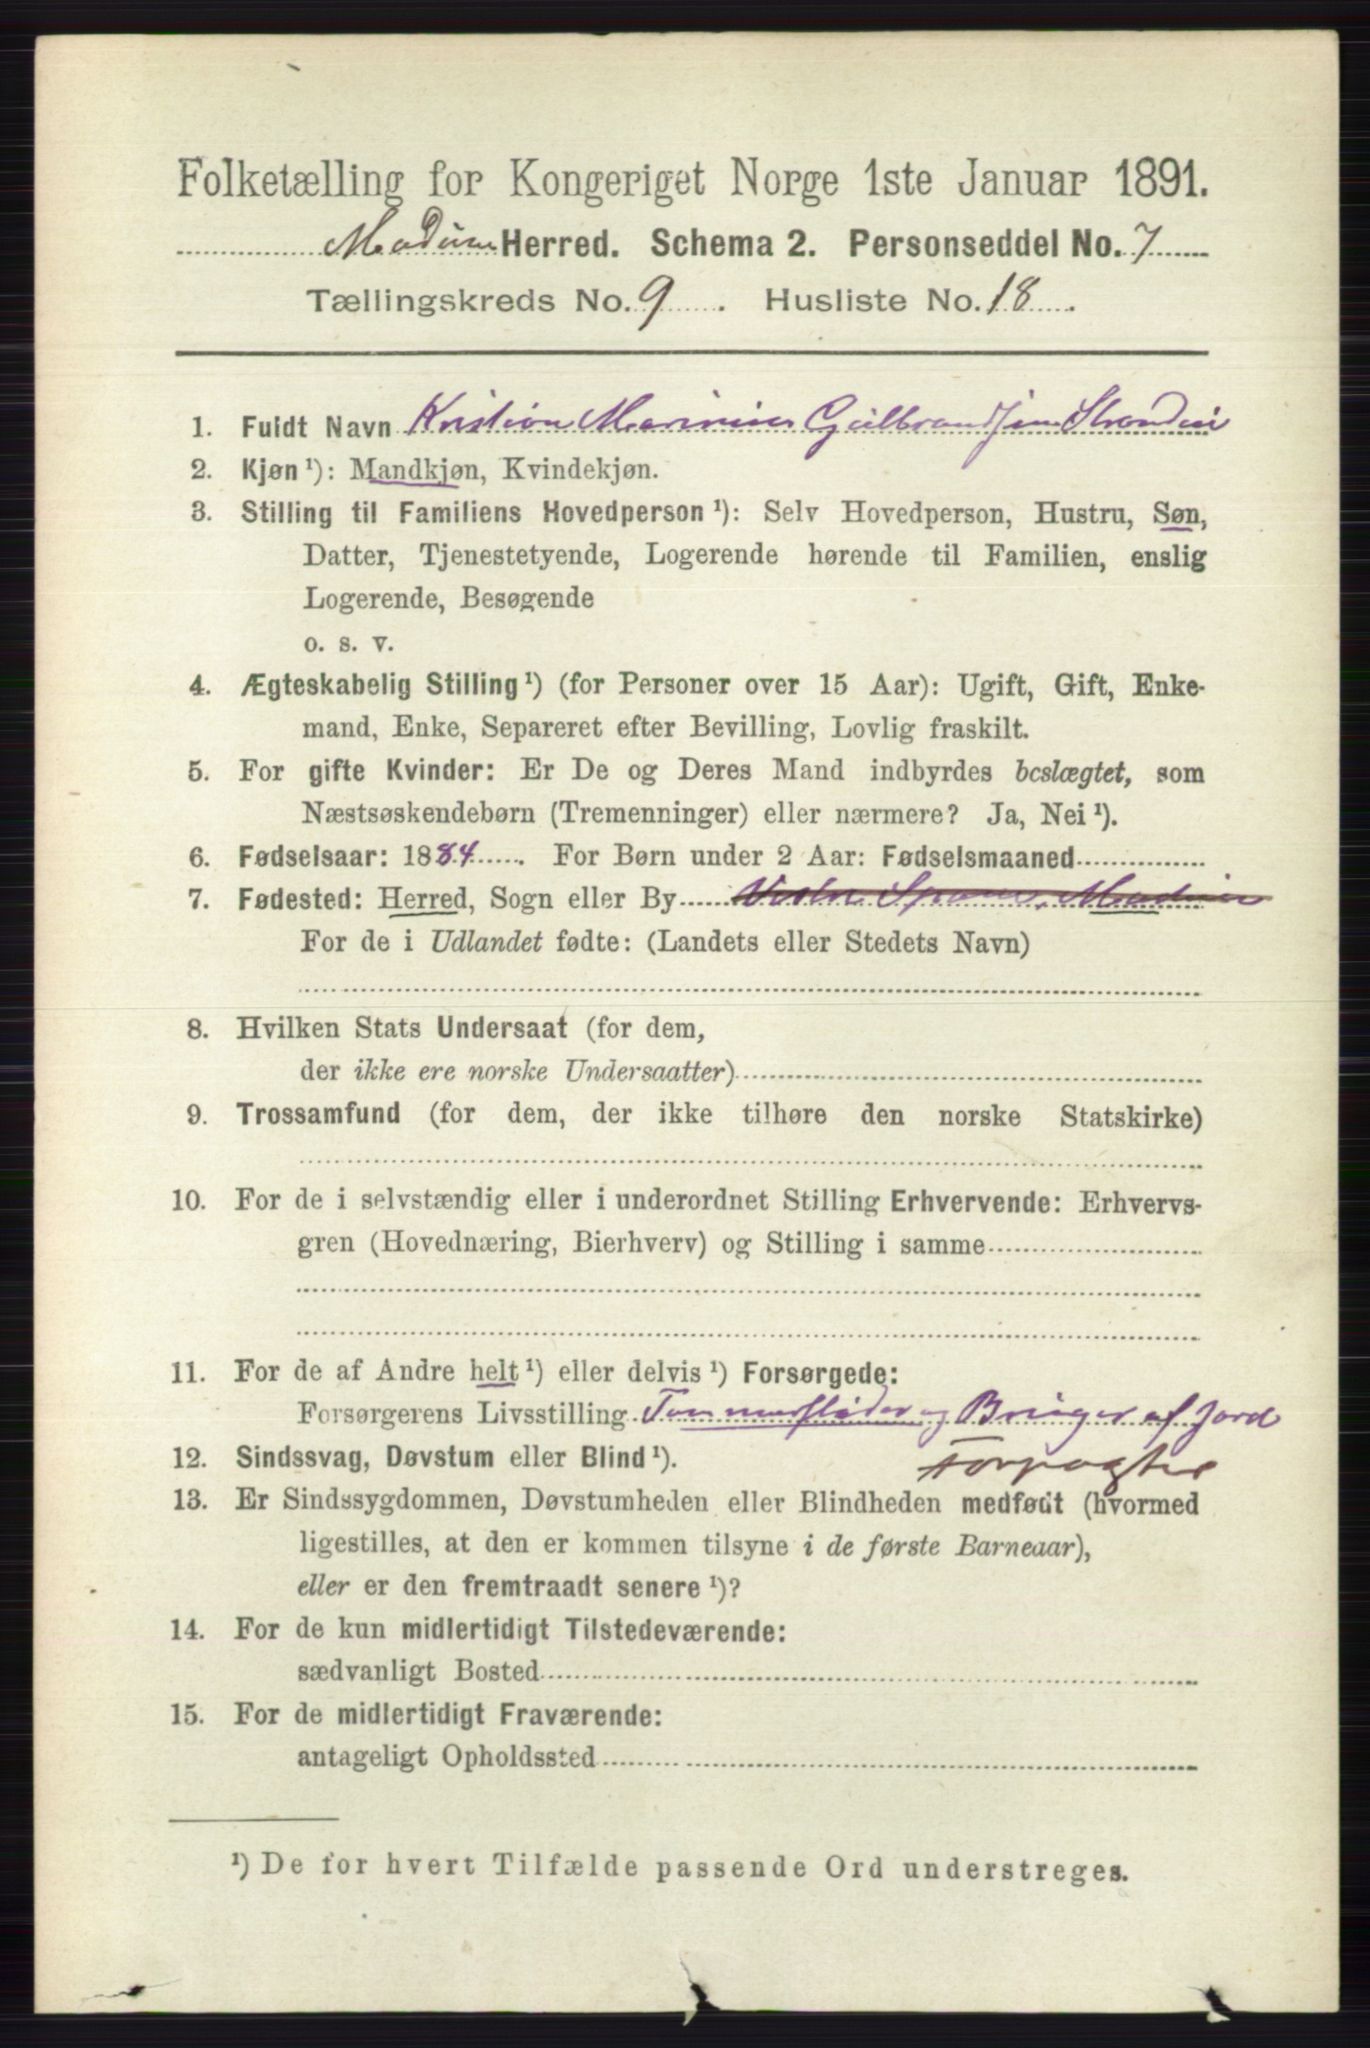 Folketælling for Kongeriget Norge 1ste Januar 1891.
Modum Herred. Schema 2. Personseddel No. 7
Tællingskreds No. 9. Husliste No. 18.
1. Fuldt Navn Kristian Marinius Gulbrandsen
2. Kjøn ¹): Mandkjøn, Kvindekjøn.
3. Stilling til Familiens Hovedperson ¹): Selv Hovedperson, Hustru, Søn,
Datter, Tjenestetyende, Logerende hørende til Familien, enslig
Logerende, Besøgende
o. s. v.
4. Ægteskabelig Stilling ¹) (for Personer over 15 Aar): Ugift, Gift, Enke-
mand, Enke, Separeret efter Bevilling, Lovlig fraskilt.
5. For gifte Kvinder: Er De og Deres Mand indbyrdes beslægtet, som
Næstsøskendebørn (Tremenninger) eller nærmere? Ja, Nei ¹).
6. Fødselsaar: 1884. For Børn under 2 Aar: Fødselsmaaned
7. Fødested: Herred, Sogn eller By Modum
For de i Udlandet fødte: (Landets eller Stedets Navn)
8. Hvilken Stats Undersaat (for dem,
der ikke ere norske Undersaatter)
9. Trossamfund (for dem, der ikke tilhøre den norske Statskirke)
10. For de i selvstændig eller i underordnet Stilling Erhvervende: Erhvervs-
gren (Hovednæring, Bierhverv) og Stilling i samme
11. For de af Andre helt ¹) eller delvis ¹) Forsørgede:
Forsørgerens Livsstilling Tømmerfløder og Bruger af Jord
Forpagter
12. Sindssvag, Døvstum eller Blind ¹).
13. Er Sindssygdommen, Døvstumheden eller Blindheden medfødt (hvormed
ligestilles, at den er kommen tilsyne i de første Barneaar),
eller er den fremtraadt senere ¹)?
14. For de kun midlertidigt Tilstedeværende:
sædvanligt Bosted
15. For de midlertidigt Fraværende:
antageligt Opholdssted
¹) De for hvert Tilfælde passende Ord understreges.